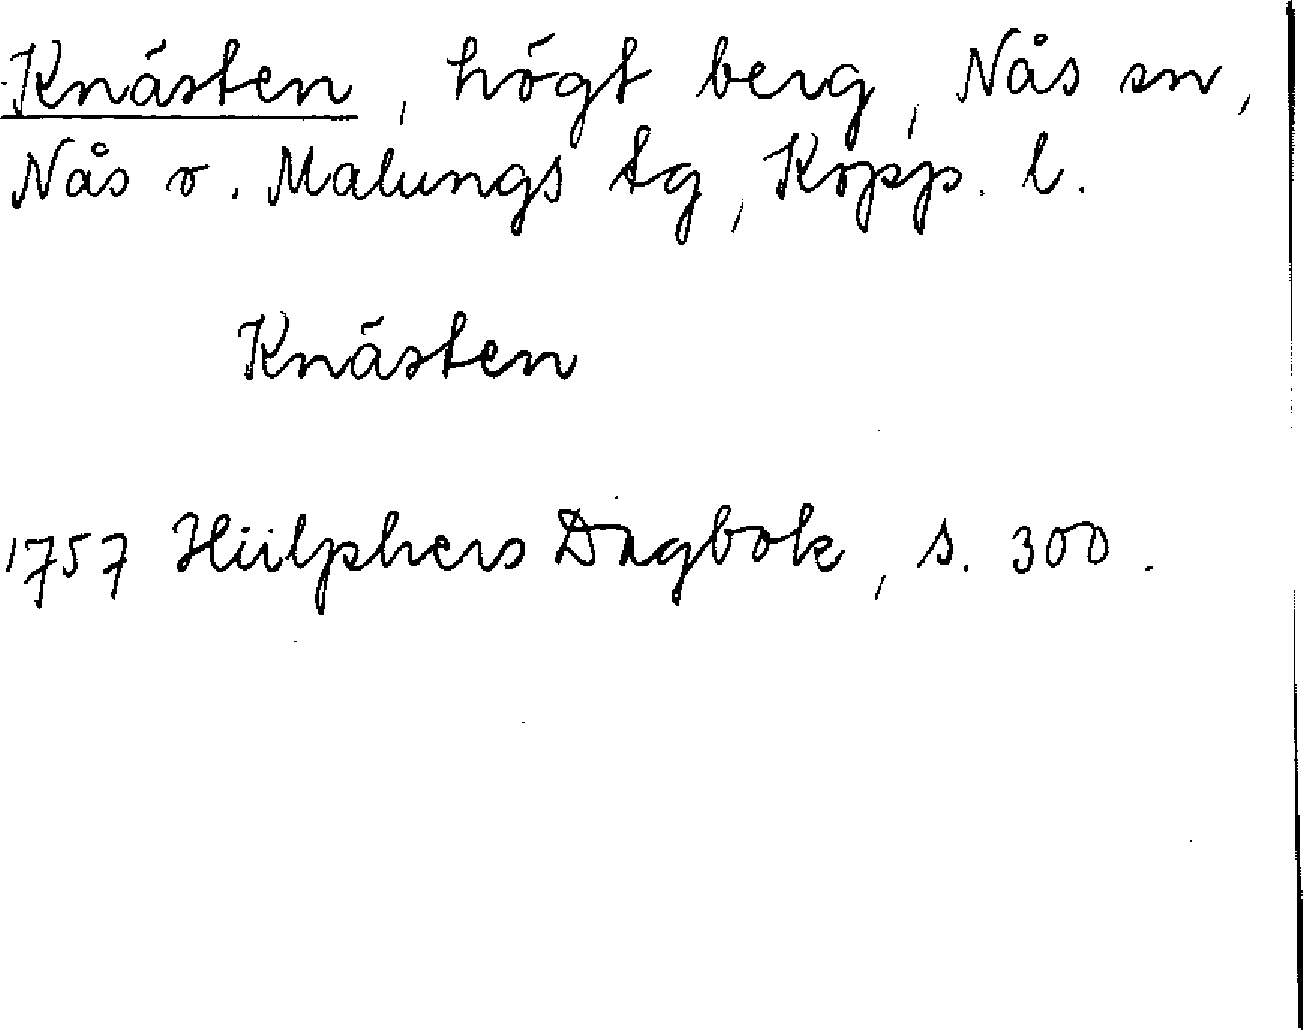 Knästen, högt berg, Nås sn,
Nås o. Malungs tg, Kopp. l.
Knästen
1757 Hülphers Dagbok, s. 300.